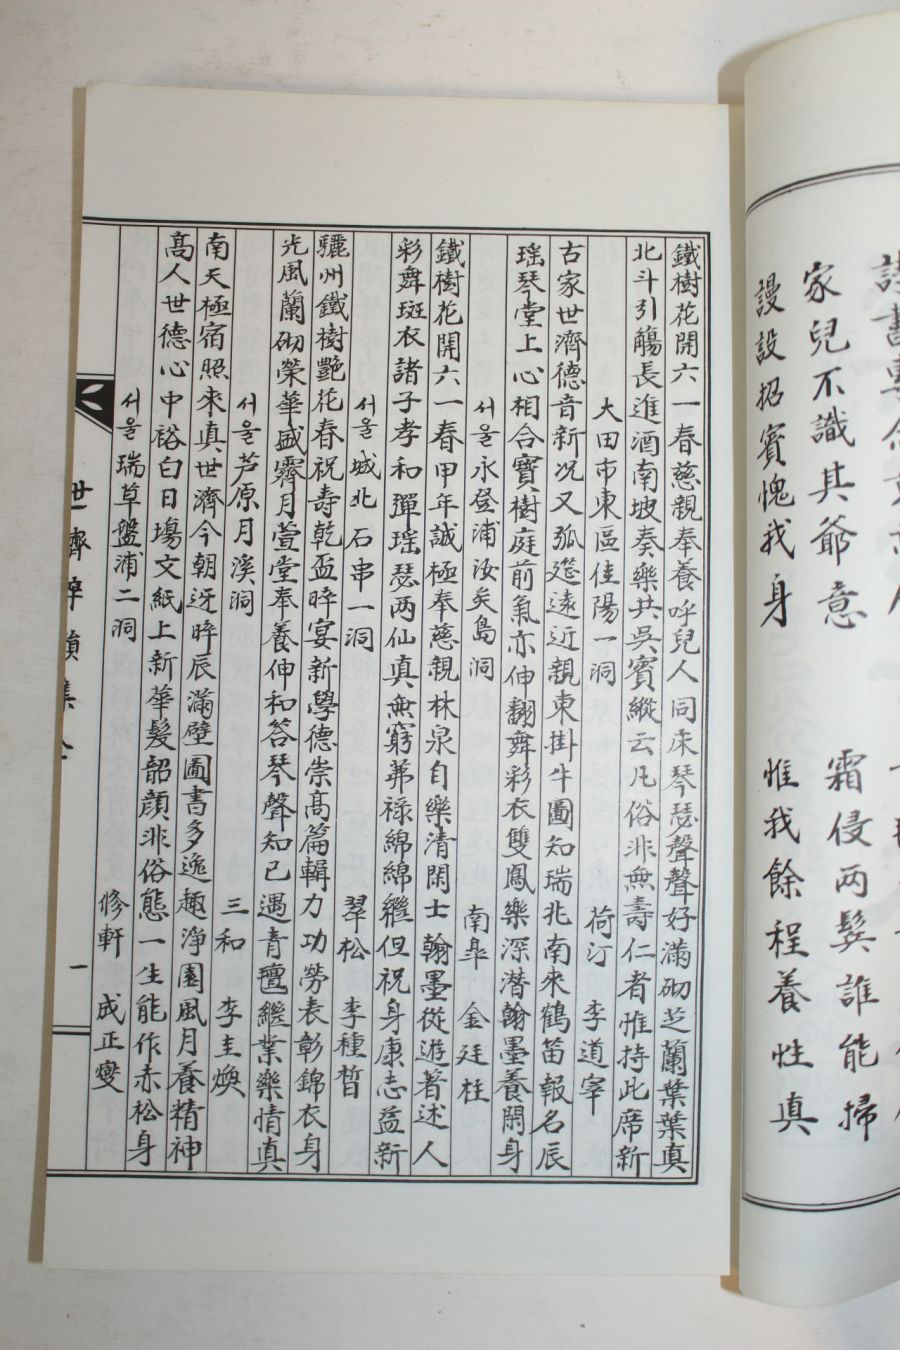 家兒不識其爺意 霜侵兩鬂誰能掃
謾設招賓愧我身 惟我餘程養性真
鐵樹花開六一春慈親奉養呼兒人同床琴瑟聲聲好滿砌芝蘭葉葉真
北斗引觴長進酒南坡奏樂共吳賓縱云凡俗非無壽仁者惟持此席新
大田市東區佳陽一洞 荷汀 李道宰
古家世濟德音新况又弧筵遠近親東掛牛圖知瑞兆南來鶴笛報名辰
瑤琴堂上心相合寶樹庭前氣亦伸翻舞彩衣雙鳳樂深潛翰墨養閑身
서울永登浦汝矣島洞 南皐 金廷柱
鐵樹花開六一春甲年誠極奉慈親林泉自樂清閑士翰墨從遊著述人
彩舞斑衣諸子孝和彈瑤瑟兩仙真無窮茀祿綿綿繼但祝身康志益新
서울城北石串一洞 翠松 李種晳
驪州鐵樹艷花春祝壽乾盃晬宴新學德崇高篇輯力功勞表彰錦衣身
光風蘭砌榮華盛霽月萱堂奉養伸和答琴聲知已遇青氊繼業樂情真
서울芦原月溪洞 三和 李圭煥
南天極宿照來真世濟今朝迓晬辰滿壁圖書多逸趣淨園風月養精神
高人世德心中裕白日塲文紙上新華髮韶顔非俗態一生能作赤松身
서울瑞草盤浦二洞 修軒 成正燮
世濟 一